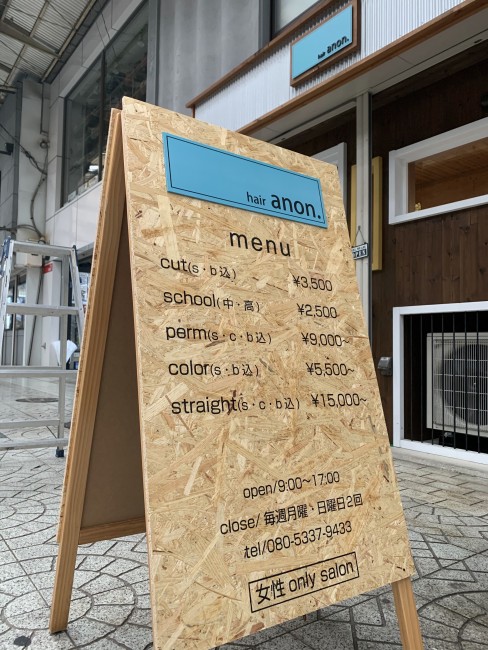 hair anon.
OPEN
hair anon.
menu
cut(s・b込) ¥3,500
school(中・高) ¥2,500
perm(s・c・b込) ¥9,000~
color(s・b込) ¥5,500~
straight(s・c・b込) ¥15,000~
open/9:00~17:00
close/毎週月曜・日曜日2回
tel/080-5337-9433
女性 only salon